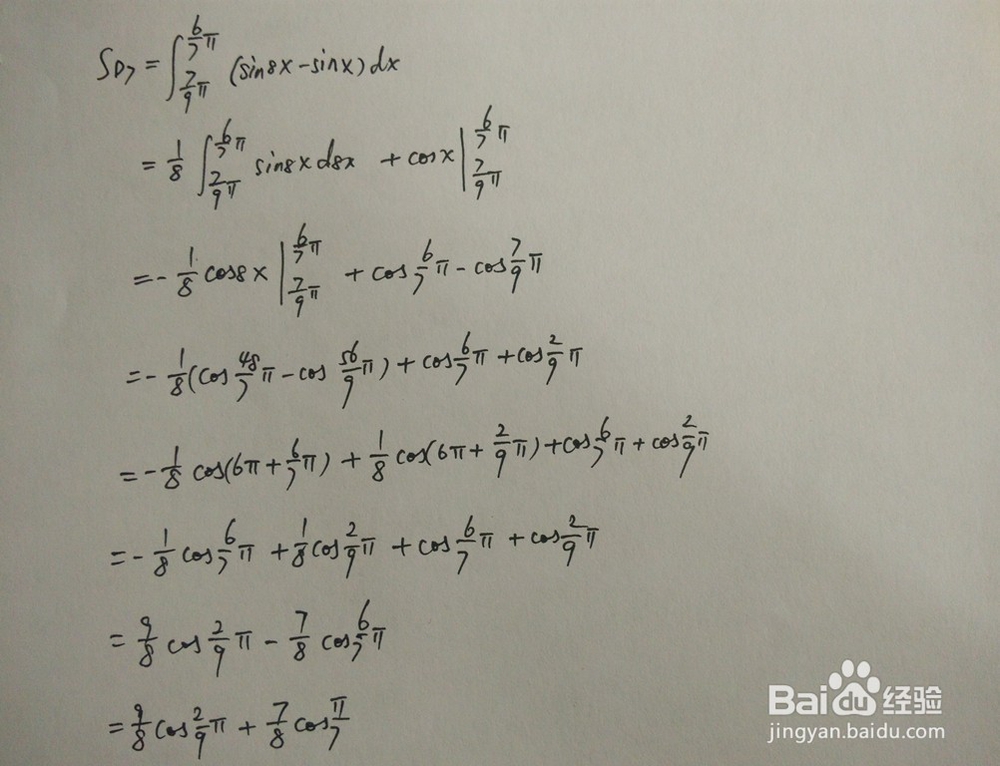 S_{D_7} = ∫_{7/9 π}^{6/7 π} (sin8x - sinx) dx
= 1/8 ∫_{7/9 π}^{6/7 π} sin8x d8x + cosx |_{7/9 π}^{6/7 π}
= - 1/8 cos8x |_{7/9 π}^{6/7 π} + cos 6/7 π - cos 7/9 π
= - 1/8 (cos 48/7 π - cos 56/9 π) + cos 6/7 π + cos 2/9 π
= - 1/8 cos(6π + 6/7 π) + 1/8 cos(6π + 2/9 π) + cos 6/7 π + cos 2/9 π
= - 1/8 cos 6/7 π + 1/8 cos 2/9 π + cos 6/7 π + cos 2/9 π
= 9/8 cos 2/9 π - 7/8 cos 6/7 π
= 9/8 cos 2/9 π + 7/8 cos π/7
Baidu 经验
jingyan.baidu.com